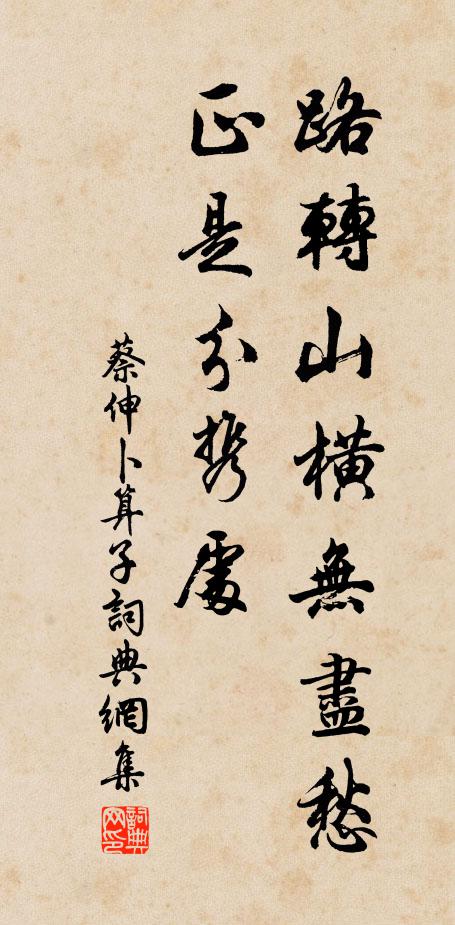 路轉山横無盡愁
正是分携處
蔡伸卜算子詞典網集
詞典网印